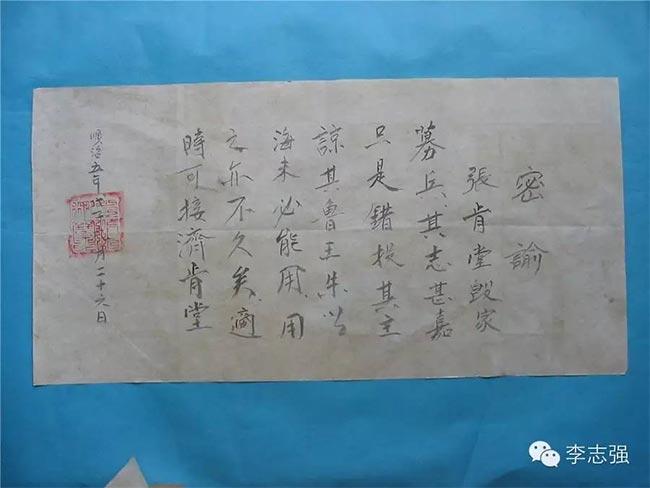 密諭
張肯堂毀家
募兵其志甚嘉
只是錯投其主
諒其魯王朱以
海未必能用用
之亦不久矣適
時可接濟肯堂
順治五年戊子月二十六日
李志强